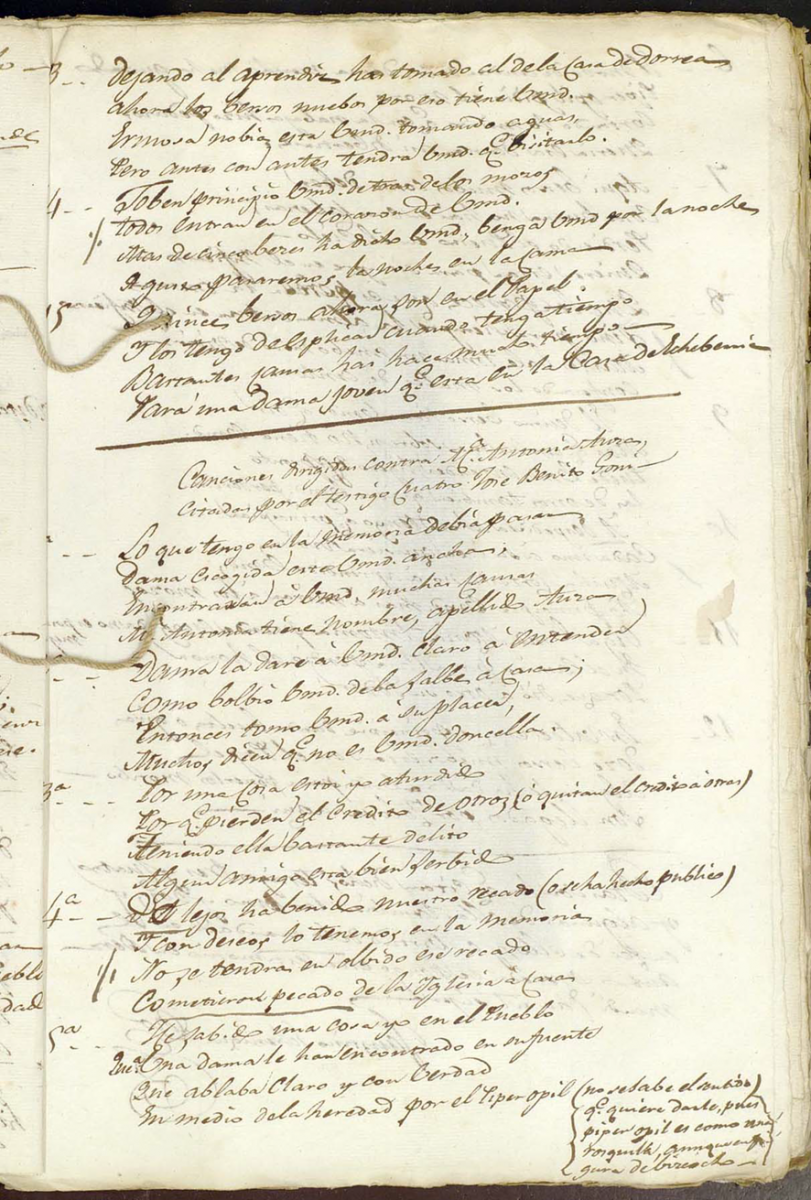 3 - - Dejando al aprendiz has tomado al de la Casa de Dorrea
ahora los bersos nuebos por eso tiene Vmd.
Ermosa nobia esta Vmd. tomando aguas,
Pero antes con antes tendra Vmd. qe. bisitarlo.
4 - - Joben principio Vmd. detras de los mozos
todos entran en el corazon de Vmd.
Mas de cinco bezes ha dicho Vmd, benga Vmd por la noche
A gusto pasaremos la noche en la Cama
15 Quince bersos ahora son en el Papel.
Y los tengo de esplicar cuando tenga tiempo
Bastantes jamas hai hace mucho tiempo
Para una dama joven qe. esta en la Casa de Echeberria
Canciones dirigidas contra Ma. Antonia Auza,
Citadas por el testigo Cuatro Jose Benito Goni-
- - Lo que tengo en la memoria debia pasar
Dama escogida este Vmd. ancha,
Encontraran à Vmd. muchas famas
Ma. Antonia tiene nombre, apellido Auza
- - Dama la daré à Vmd. claro à entender
Como bolbio Vmd. de ba salbe à Casa;
Entonces tomo Vmd. à su placer,
Muchos dicen qe. no es Vmd. doncella.
3ª - - Por una cosa estoi yo aturdido
Por qe. pierden el credito de otros (ó quitan el credito à otras)
Teniendo ella bastante delito
Algun amigo esta bien serbido
4ª - - De lejos ha benido nuestro recado (o se ha hecho publico)
Y con deseos lo tenemos en la memoria
No se tendra en olbido ese recado
Cometieron pecado de la Iglesia à Casa
5ª - - He sabido una cosa yo en el Pueblo
Que Una dama le han encontrado en su fuente
Que ablaba claro y con berdad
En medio de la heredad por el Piper opil (no se sabe el sentido
qe. quiere darle, pues
piper opil es como una
rosquilla, aunque en fi-
gura de bizcocho -